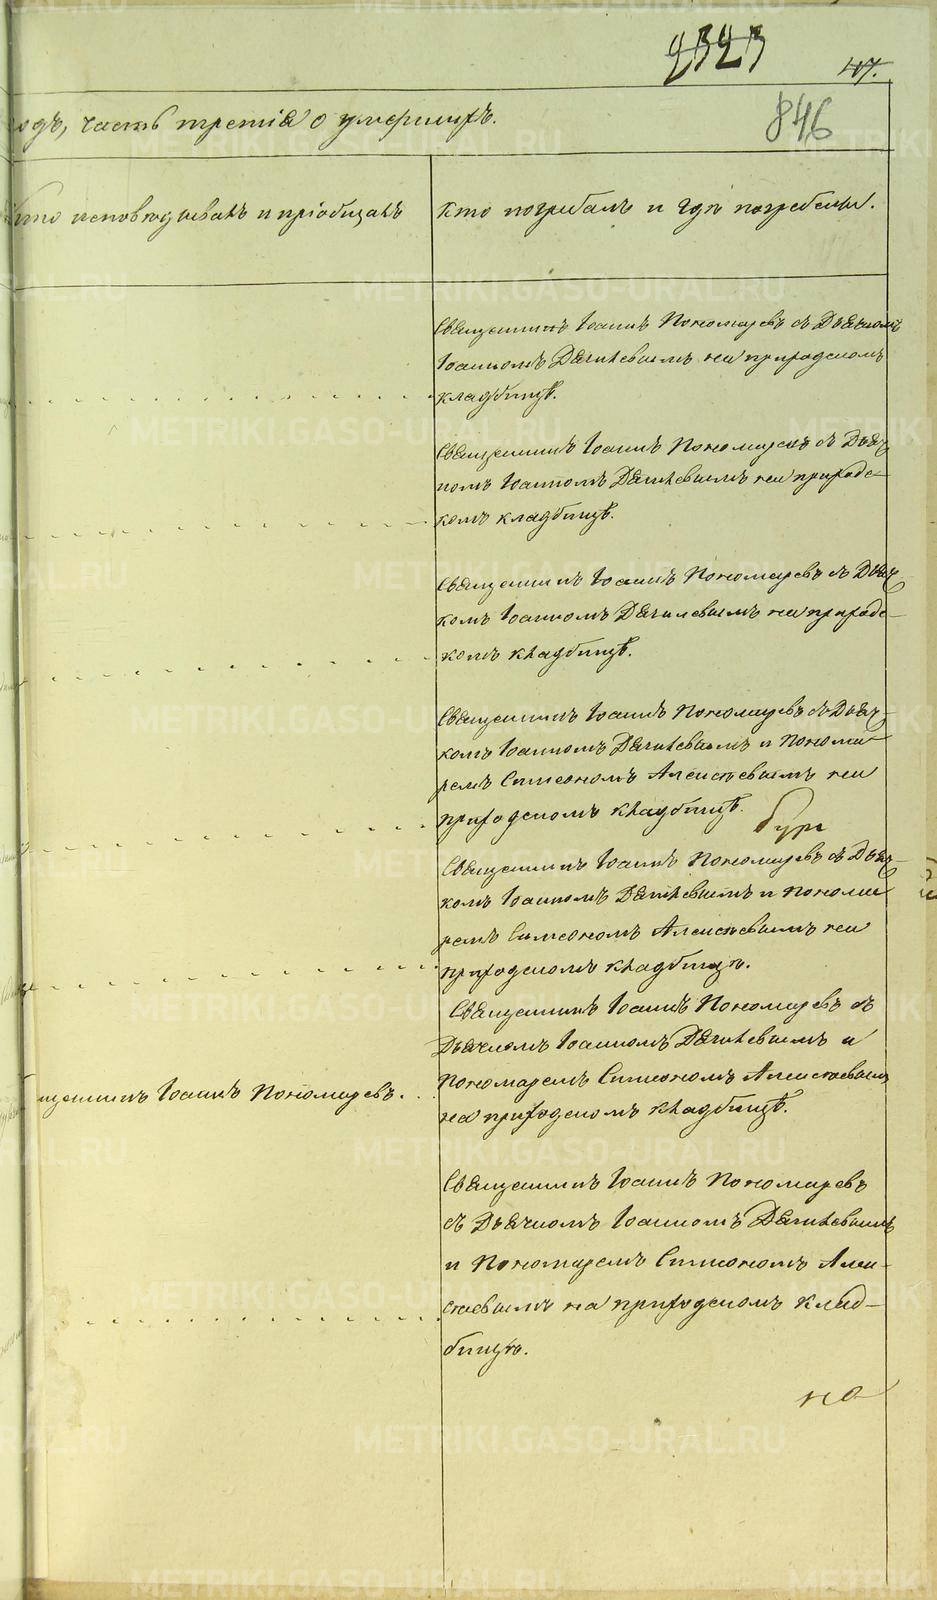 2323
417.
846
одъ, часть третія о умершихъ.
Кто исповѣдывалъ и пріобщалъ
Кто погребалъ и гдѣ погребены.
Священникъ Іоаннъ Пономаревъ съ Дьячкомъ
Іоанномъ Дягилевымъ на приходскомъ
кладбищѣ.
Священникъ Іоаннъ Пономаревъ съ Дьяч
комъ Іоанномъ Дягилевымъ на приходс-
комъ кладбищѣ.
Священникъ Іоаннъ Пономаревъ съ Дьяч
комъ Іоанномъ Дягилевымъ на приходс-
комъ кладбищѣ.
Священникъ Іоаннъ Пономаревъ съ Дьяч-
комъ Іоанномъ Дягилевымъ и Понома
ремъ Симеономъ Алексѣевымъ на
приходскомъ кладбищѣ.
Священникъ Іоаннъ Пономаревъ съ Дьяч-
комъ Іоанномъ Дягилевымъ и Понома
ремъ Симеономъ Алексѣевымъ на
приходскомъ кладбищѣ.
Священникъ Іоаннъ Пономаревъ съ
Дьячкомъ Іоанномъ Дягилевымъ и
щенникъ Іоаннъ Пономаревъ.
Пономаремъ Симеономъ Алексѣевымъ
на приходскомъ кладбищѣ.
Священникъ Іоаннъ Пономаревъ
съ Дьячкомъ Іоанномъ Дягилевымъ
и Пономаремъ Симеономъ Алек-
сѣевымъ на приходскомъ клад-
бищѣ.
на
METRIKI.GASO-URAL.RU